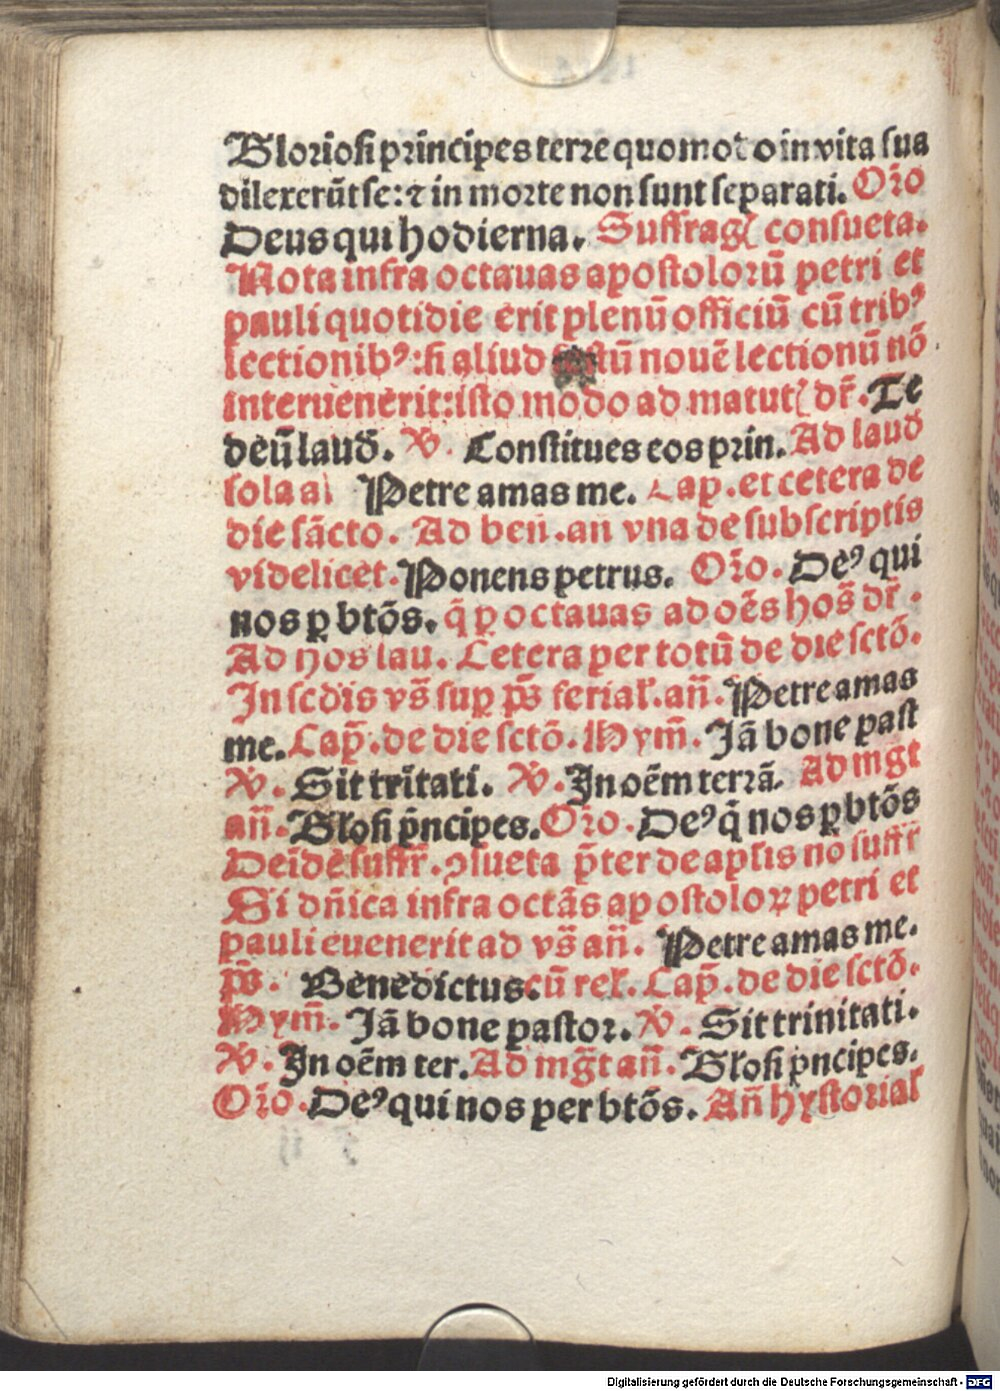 Gloriosi principes terre quomodo in vita sua
dilexerūt se: ⁊ in morte non sunt separati. Orō
Deus qui hodierna. Suffrag consueta.
Nota infra octauas apostolorū petri et
pauli quotidie erit plenū officiū cū tribꝰ
lectionibꝰ: si aliud festū nouē lectionū nō
interuenerit: isto modo ad matut dr̄. Te
deū laud̄. V. Constitues eos prin. Ad laud̄
sola a Petre amas me. Cap. et cetera de
die sācto. Ad ben̄. an̄ vna de subscriptis
videlicet. Ponens petrus. Orō. Deꝰ qui
nos ꝑ btōs. q̄ ꝑ octauas ad oēs hos̄ dr̄.
Ad hos lau. Cetera per totū de die sctō.
In scdis vs̄ suꝑ ps̄ ferial̓. an̄. Petre amas
me. Cap̄. de die sctō. Hym̄. Jā bone past
V. Sit trītati. V. In oēm terrā. Ad mgt̄
an̄. Glosi p̄ncipes. Orō. Deꝰ q̄ nos ꝑ btōs
Deīde suffr̄. ꝯsueta p̄ter de apłis nō suffr̄
Si dn̄ica infra octās apostoloꝝ petri et
pauli euenerit ad vs̄ an̄. Petre amas me.
ps̄. Benedictus. cū rel̓. Cap̄. de die sctō.
Hym̄. Jā bone pastor. V. Sit trinitati.
V. In oēm ter. Ad mgt̄ an̄. Glosi p̄ncipes.
Orō. Deꝰ qui nos per btōs. An̄ hystorial̓
Digitalisierung gefördert durch die Deutsche Forschungsgemeinschaft - DFG